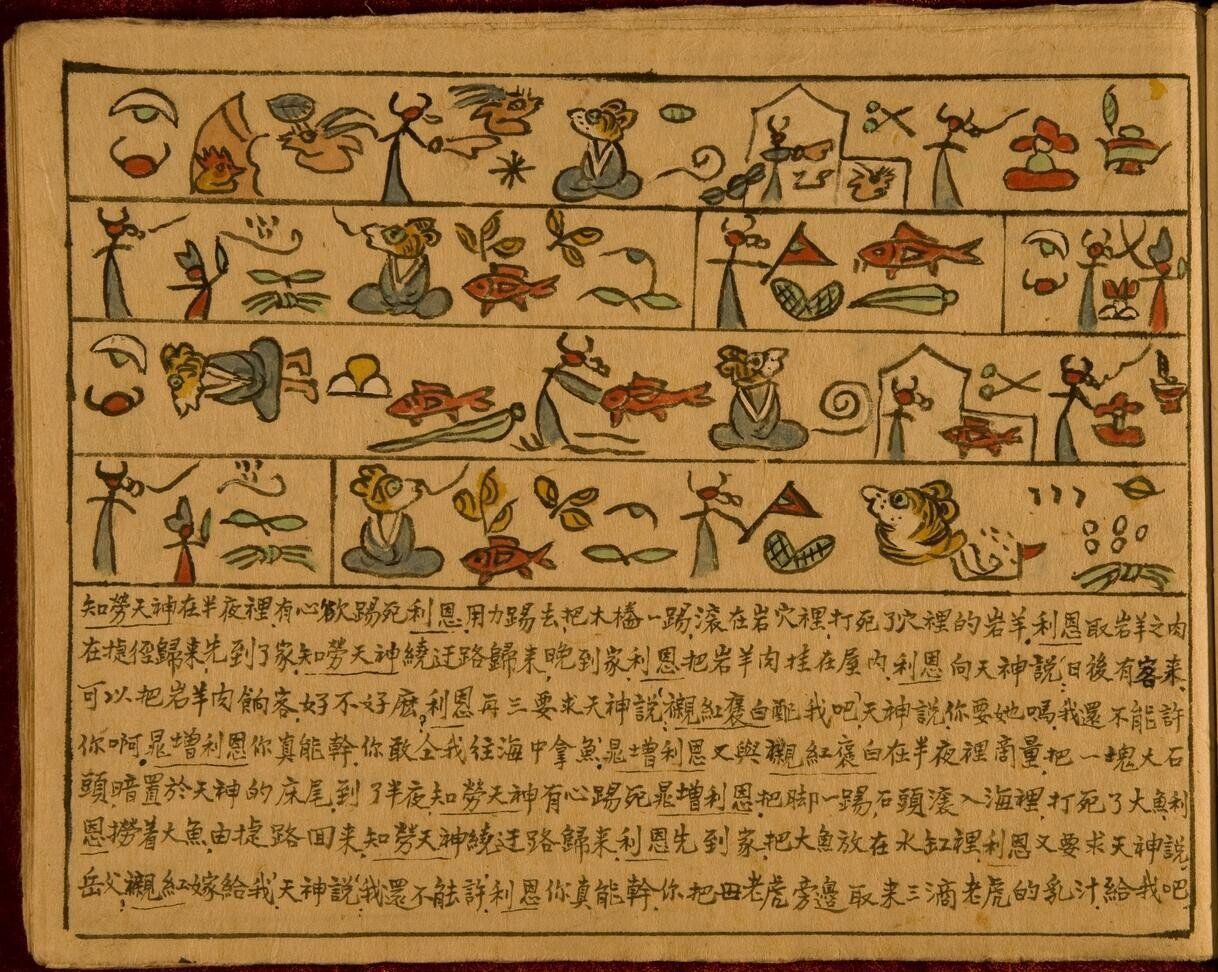 知勞天神在半夜裡,有心欲踢死利恩,用力踢去,把木樁一踢,滾在岩穴裡,打死了穴裡的岩羊,利恩取岩羊之肉
在捷徑歸来,先到了家,知勞天神繞迂路歸来,晚到家,利恩把岩羊肉挂在屋内,利恩向天神說,日後有客来,
可以把岩羊肉餉客,好不好麽?利恩再三要求天神說,襯紅褒白配我吧,天神說,你要她嗎,我還不能許
你啊,晁增利恩,你真能幹,你敢仝我往海中拿魚,晁增利恩又與襯紅褒白在半夜裡商量,把一塊大石
頭暗置於天神的床尾,到了半夜,知勞天神有心踢死晁增利恩,把脚一踢,石頭滾入海裡,打死了大魚,利
恩撈着大魚,由捷路回来,知勞天神繞迂路歸来,利恩先到家,把大魚放在水缸裡,利恩又要求天神說,
岳父,襯紅嫁給我,天神說,我還不能許,利恩你真能幹,你把母老虎旁邊取来三滴老虎的乳汁給我吧